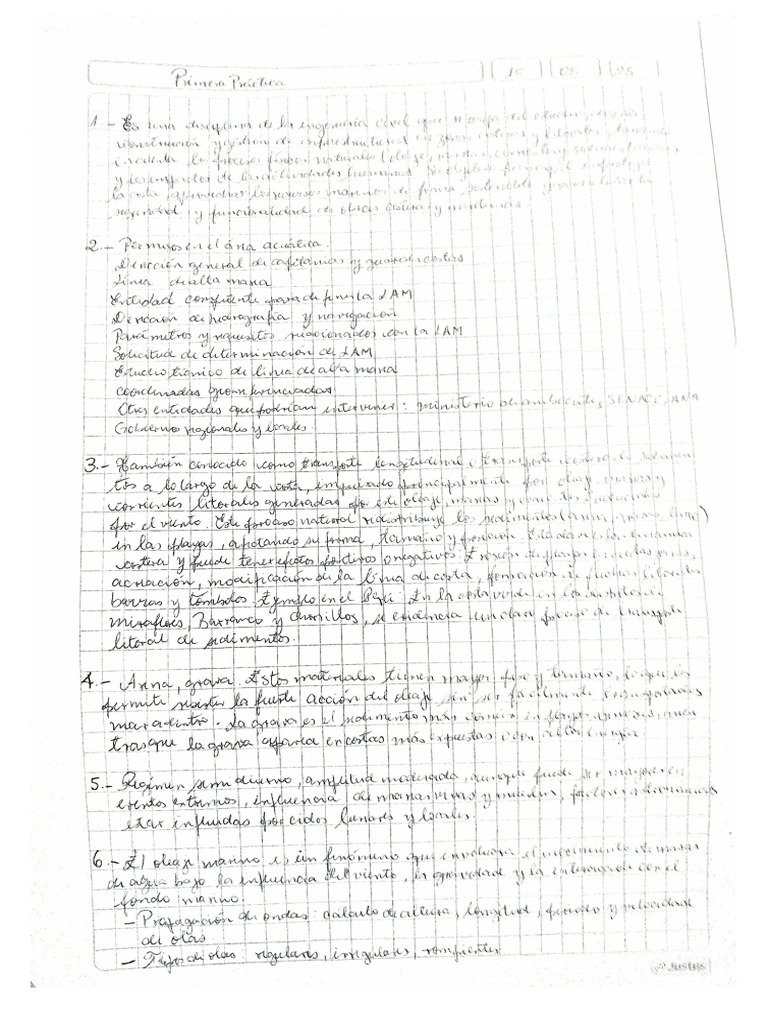 Primera Práctica
1.- Es una disciplina de la ingeniería civil que se encarga del estudio, diseño,
construcción y gestión de infraestructuras en zonas costeras y litorales,
los procesos físicos naturales
y los impactos de las actividades humanas. Su objetivo principal es proteger
la costa, aprovechar los recursos marinos de forma sostenible y garantizar la
seguridad y funcionalidad de obras costeras y marítimas.
2.- Permisos en el área acuática.
Dirección general de capitanías y guardacostas
Línea de alta marea
Entidad competente para definir la LAM
Dirección de hidrografía y navegación
Parámetros y requisitos relacionados con la LAM
Solicitud de determinación de LAM
Estudio técnico de línea de alta marea
coordenadas georreferenciadas
Otras entidades que podrían intervenir: ministerio de ambiente, SENACE, ANA
Gobiernos regionales y locales.
3.- También conocido como transporte longitudinal o transporte costero de sedimen
tos a lo largo de la costa, impulsado principalmente por oleaje, mareas y
corrientes litorales generadas por el oleaje, mareas y
por el viento. Este proceso natural redistribuye los sedimentos (arena, grava, limo)
en las playas, afectando su forma, tamaño y posición. Está la dinámica
costera y puede tener efectos positivos o negativos: Erosión de playas
acreación, modificación de la línea de costa, formación de
barras y tómbolos. Ejemplo en el Perú: En la costa verde en los distritos de
miraflores, Barranco y chorrillos, se evidencia un claro proceso de transporte
litoral de sedimentos.
4.- Arena, grava. Estos materiales tienen mayor peso y tamaño, lo que les
permite resistir la fuerte acción del oleaje sin ser fácilmente transportados
mar adentro. La grava es el sedimento más común en playas mien
tras que la grava aparece en costas más expuestas o con alta energía.
5.- Régimen semidiurno, amplitud moderada, aunque puede ser mayor en
eventos extremos, influencia de mareas vivas y muertas,
estar influidas por ciclos lunares y locales.
6.- El oleaje marino es un fenómeno que involucra el movimiento de masas
de agua bajo la influencia del viento, la gravedad y la interacción con el
fondo marino.
- Propagación de ondas: cálculo de altura, longitud, periodo y velocidad
de olas
- Tipos de olas: regulares, irregulares, rompientes
JUSTUS